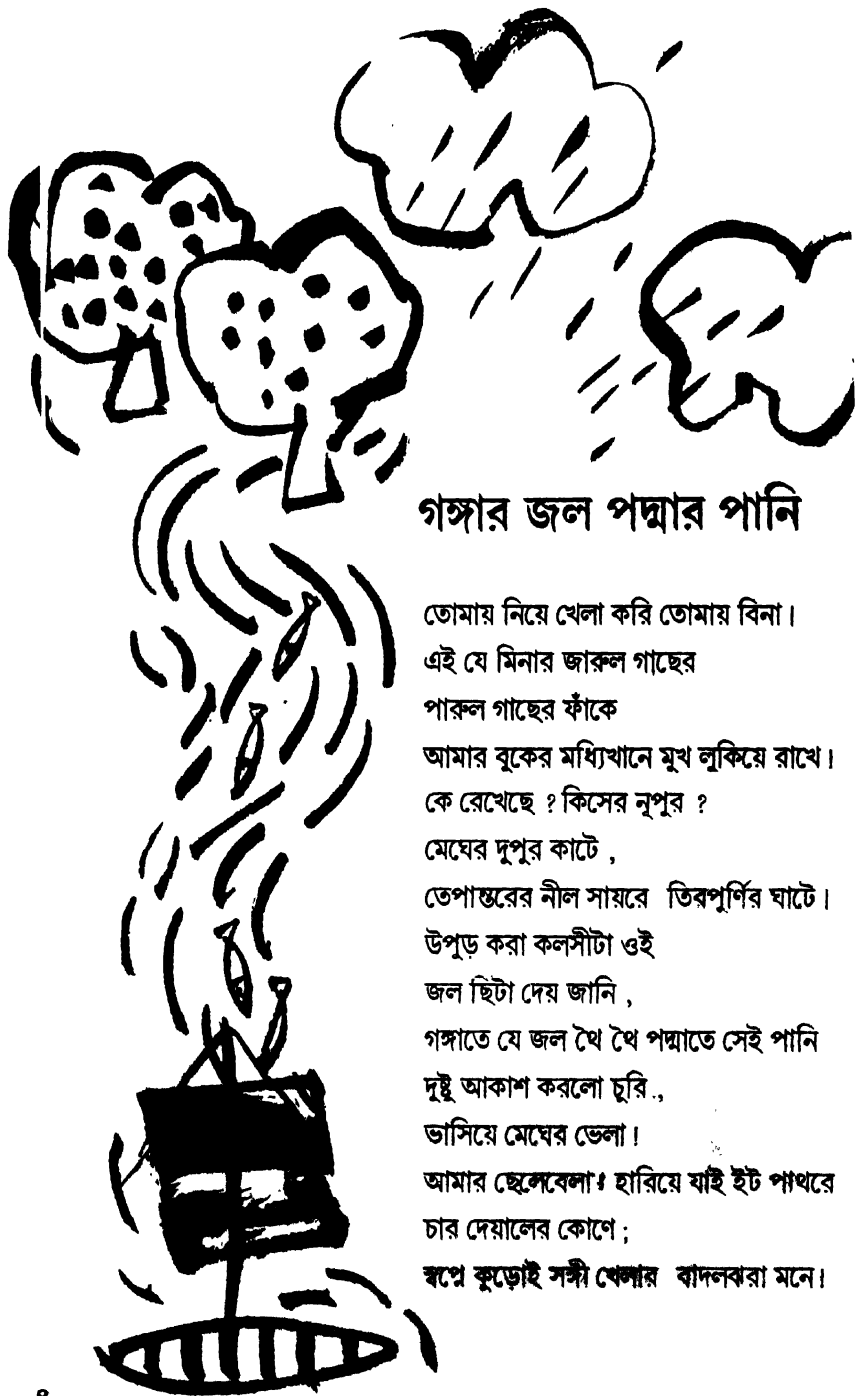 গঙ্গার জল পদ্মার পানি
তোমায় নিয়ে খেলা করি তোমায় বিনা।
এই যে মিনার জারুল গাছের
পারুল গাছের ফাঁকে
আমার বুকের মধ্যিখানে মুখ লুকিয়ে রাখে।
কে রেখেছে ? কিসের নূপুর ?
মেঘের দুপুর কাটে ,
তেপান্তরের নীল সায়রে তিরপুর্ণির ঘাটে।
উপুড় করা কলসীটা ওই
জল ছিটা দেয় জানি ,
গঙ্গাতে যে জল থৈ থৈ পদ্মাতে সেই পানি
দুষ্টু আকাশ করলো চুরি .,
ভাসিয়ে মেঘের ভেলা।
আমার ছেলেবেলা! হারিয়ে যাই ইট পাথরে
চার দেয়ালের কোণে ;
স্বপ্নে কুড়োই সঙ্গী খেলার বাদলঝরা মনে।